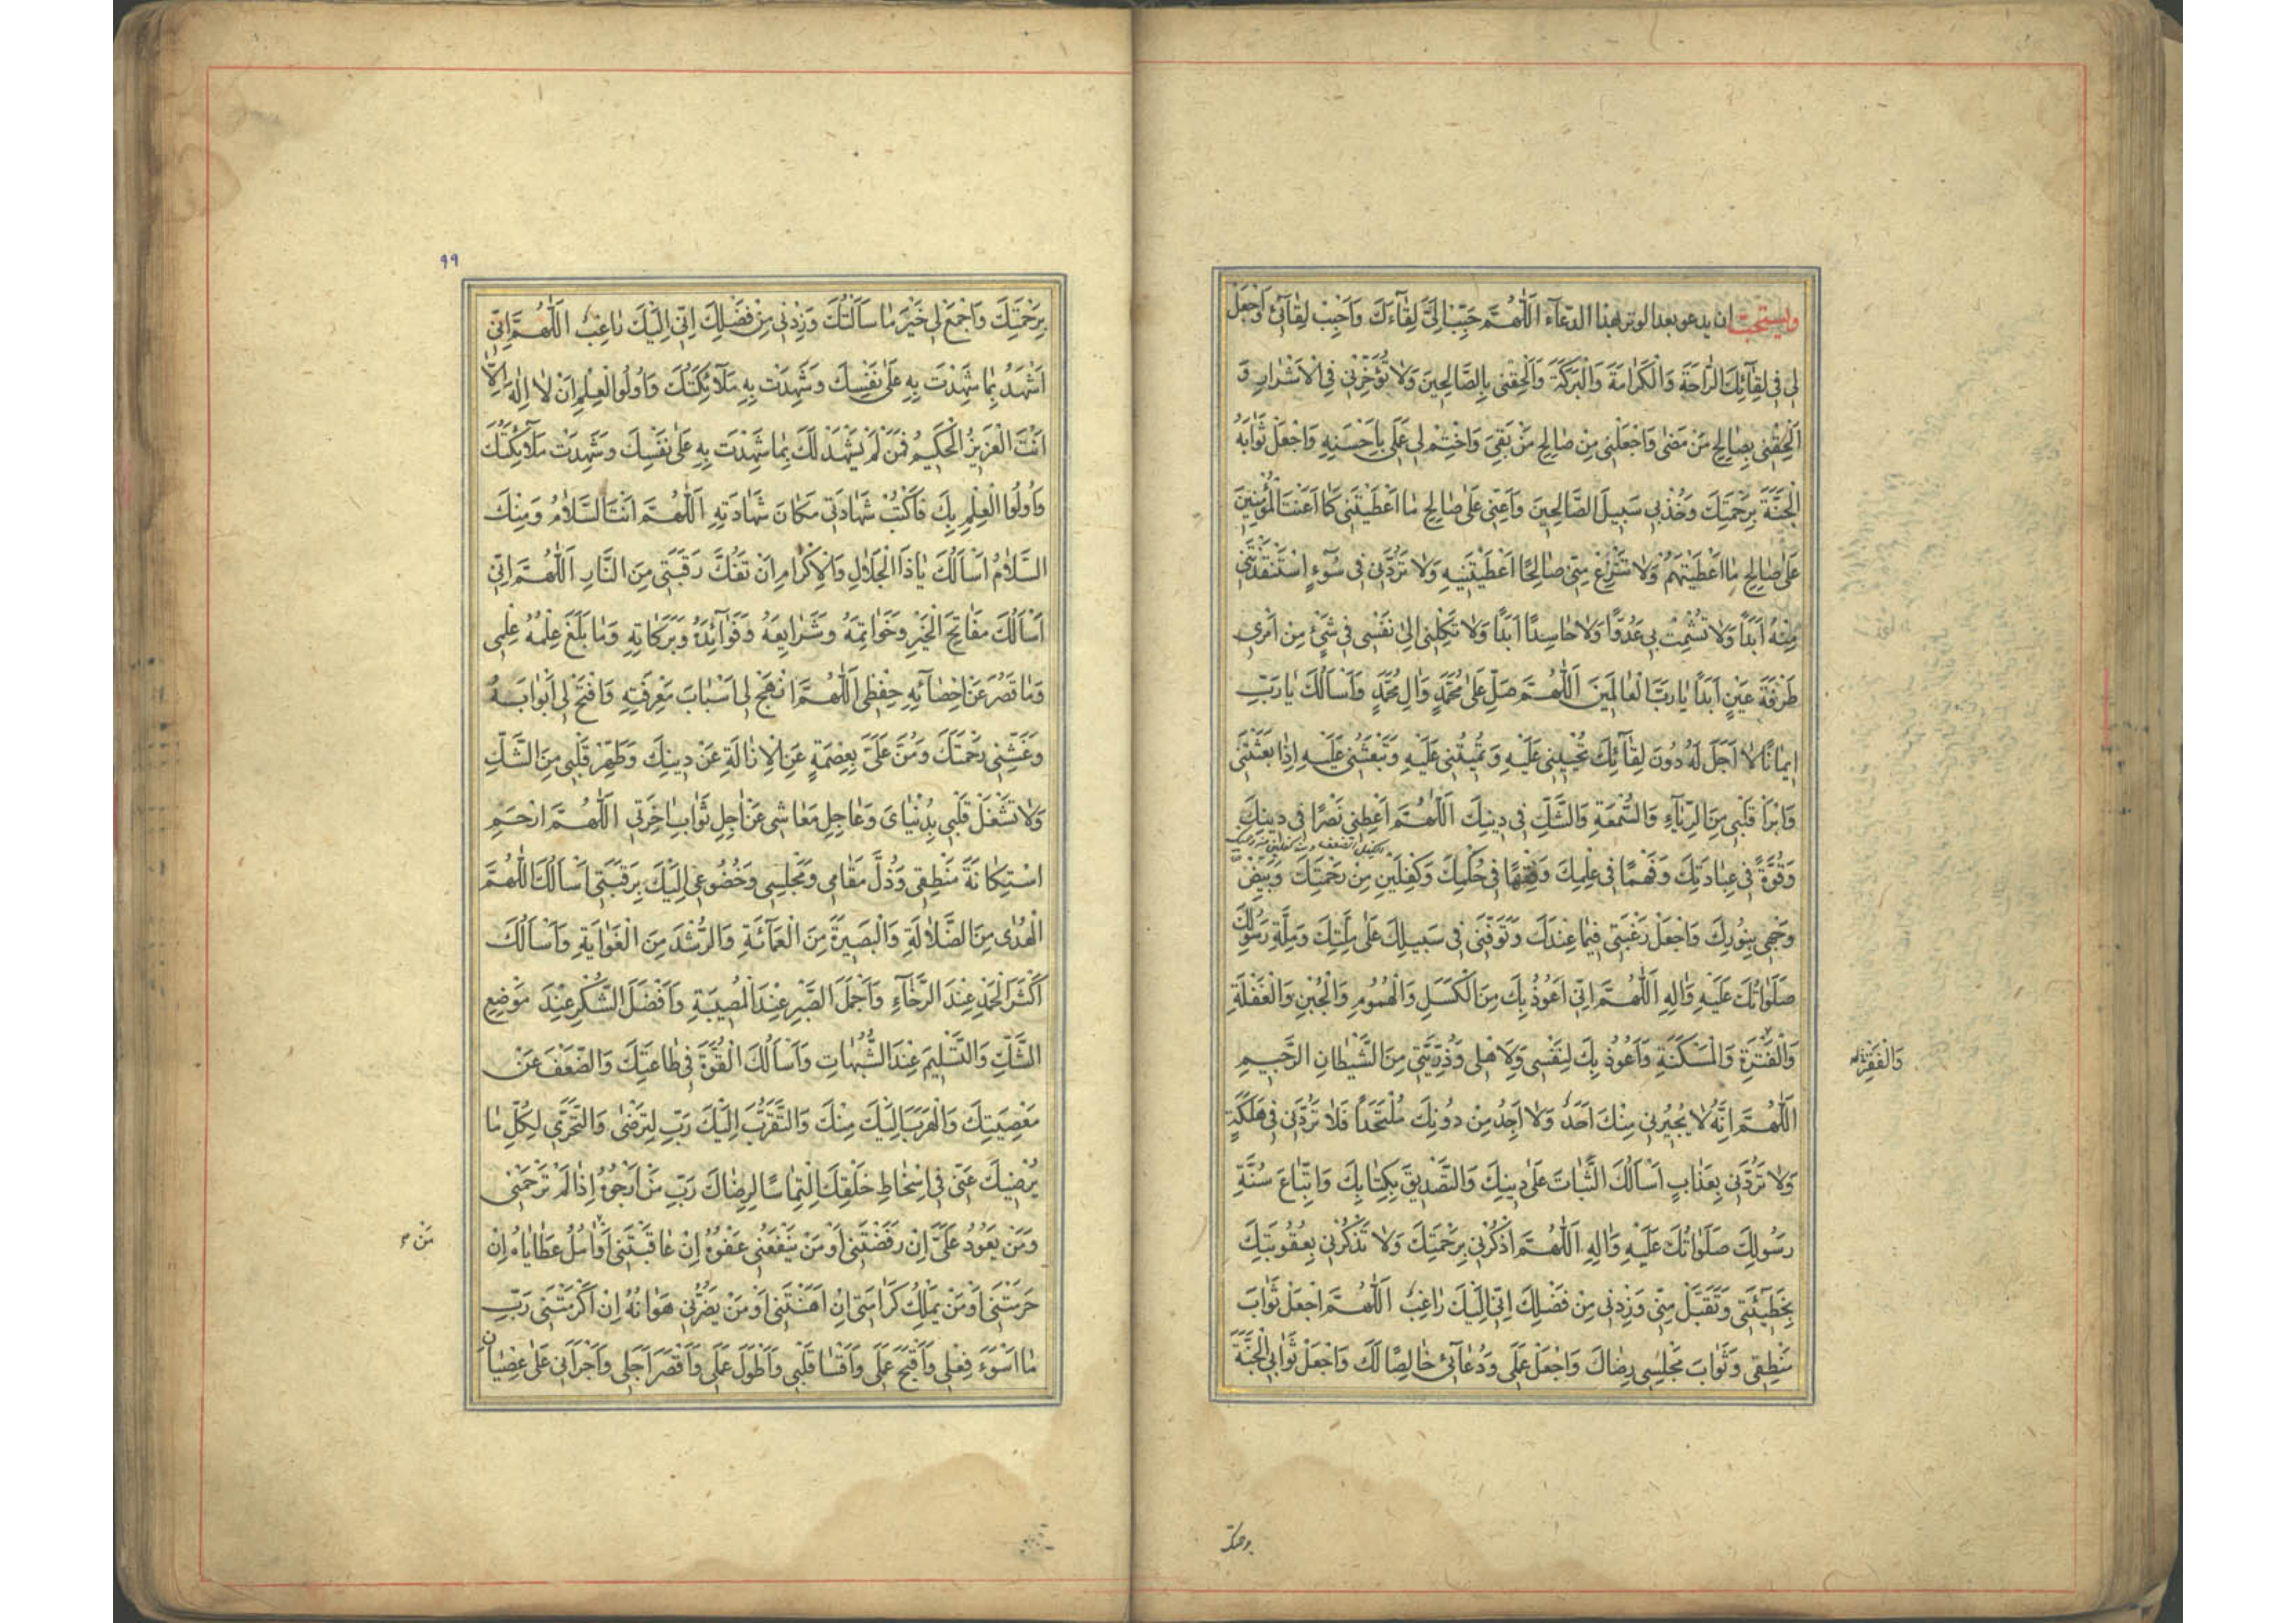 ويستحبّ ان يدعو بعد الوتر بهذا الدّعآء اَللّٰهُمَّ حَبِّبْ اِلَيَّ لِقٰآءَكَ وَاَحْبِبْ لِقٰآئى وَاجْعَلْ
لى فى لِقٰآئِكَ الرّٰاحَةَ وَالْكَرٰامَةَ وَالْبَرَكَةَ وَاَلْحِقْنى بِالصّٰالِحينَ وَلٰا تُؤَخِّرْنى فِى الْاَشْرٰارِ وَ
اَلْحِقْنى بِصٰالِحِ مَنْ مَضىٰ وَاجْعَلْنى مِنْ صٰالِحِ مَنْ بَقِيَ وَاخْتِمْ لى عَمَلى بِاَحْسَنِهِ وَاجْعَلْ ثَوٰابَهُ
الْجَنَّةَ بِرَحْمَتِكَ وَخُذْ بى سَبيلَ الصّٰالِحينَ وَاَعِنّى عَلىٰ صٰالِحِ مٰا اَعْطَيْتَنى كَمٰا اَعَنْتَ الْمُؤْمِنينَ
عَلىٰ صٰالِحِ مٰا اَعْطَيْتَهُمْ وَلٰا تَنْزِعْ مِنّى صٰالِحًا اَعْطَيْتَنيهِ وَلٰا تَرُدَّنى فى سُوٓءٍ اسْتَنْقَذْتَنى
مِنْهُ اَبَدًا وَلٰا تُشْمِتْ بى عَدُوًّا وَلٰا حٰاسِدًا اَبَدًا وَلٰا تَكِلْنى اِلىٰ نَفْسى فى شَيْءٍ مِنْ اَمْرى
طَرْفَةَ عَيْنٍ اَبَدًا يٰا رَبَّ الْعٰالَمينَ اَللّٰهُمَّ صَلِّ عَلىٰ مُحَمَّدٍ وَاٰلِ مُحَمَّدٍ وَاَسْاَلُكَ يٰا رَبِّ
ايمٰانًا لٰا اَجَلَ لَهُ دُونَ لِقٰآئِكَ تُحْيينى عَلَيْهِ وَتُميتُنى عَلَيْهِ وَتَبْعَثُنى عَلَيْهِ اِذٰا بَعَثْتَنى
وَابْرَأْ قَلْبى مِنَ الرِّيٰآءِ وَالسُّمْعَةِ وَالشَّكِّ فى دينِكَ اَللّٰهُمَّ اَعْطِنى نَصْرًا فى دينِكَ
وَقُوَّةً فى عِبٰادَتِكَ وَفَهْمًا فى عِلْمِكَ وَفِقْهًا فى حُكْمِكَ وَكِفْلَيْنِ مِنْ رَحْمَتِكَ وَبَيِّضْ
وَجْهى بِنُورِكَ وَاجْعَلْ رَغْبَتى فيمٰا عِنْدَكَ وَتَوَفَّنى فى سَبيلِكَ عَلىٰ مِلَّتِكَ وَمِلَّةِ رَسُولِكَ
صَلَوٰاتُكَ عَلَيْهِ وَاٰلِهِ اَللّٰهُمَّ اِنّى اَعُوذُ بِكَ مِنَ الْكَسَلِ وَالْهُمُومِ وَالْجُبْنِ وَالْغَفْلَةِ
وَالْفَتْرَةِ وَالْمَسْكَنَةِ وَاَعُوذُ بِكَ لِنَفْسى وَلِاَهْلى وَذُرِّيَّتى مِنَ الشَّيْطٰانِ الرَّجيمِ
اَللّٰهُمَّ اِنَّهُ لٰا يُجيرُنى مِنْكَ اَحَدٌ وَلٰا اَجِدُ مِنْ دُونِكَ مُلْتَحَدًا فَلٰا تَرُدَّنى فى هَلَكَةٍ
وَلٰا تَرُدَّنى بِعَذٰابٍ اَسْاَلُكَ الثَّبٰاتَ عَلىٰ دينِكَ وَالتَّصْديقَ بِكِتٰابِكَ وَاتِّبٰاعَ سُنَّةِ
رَسُولِكَ صَلَوٰاتُكَ عَلَيْهِ وَاٰلِهِ اَللّٰهُمَّ اذْكُرْنى بِرَحْمَتِكَ وَلٰا تَذْكُرْنى بِعُقُوبَتِكَ
بِخَطيٓئَتى وَتَقَبَّلْ مِنّى وَزِدْنى مِنْ فَضْلِكَ اِنّى اِلَيْكَ رٰاغِبٌ اَللّٰهُمَّ اجْعَلْ ثَوٰابَ
مَنْطِقى وَثَوٰابَ مَجْلِسى رِضٰاكَ وَاجْعَلْ عَمَلى وَدُعٰآئى خٰالِصًا لَكَ وَاجْعَلْ ثَوٰابِىَ الْجَنَّةَ
وَالْفَقْرِ
برحمتك
٩٩
بِرَحْمَتِكَ وَاجْمَعْ لى خَيْرَ مٰا سَاَلْتُكَ وَزِدْنى مِنْ فَضْلِكَ اِنّى اِلَيْكَ رٰاغِبٌ اَللّٰهُمَّ اِنّى
اَشْهَدُ بِمٰا شَهِدْتَ بِهِ عَلىٰ نَفْسِكَ وَشَهِدَتْ بِهِ مَلٰٓائِكَتُكَ وَاُولُوا الْعِلْمِ اَنْ لٰا اِلٰهَ اِلّٰا
اَنْتَ الْعَزيزُ الْحَكيمُ فَمَنْ لَمْ يَشْهَدْ لَكَ بِمٰا شَهِدْتَ بِهِ عَلىٰ نَفْسِكَ وَشَهِدَتْ مَلٰٓائِكَتُكَ
وَاُولُوا الْعِلْمِ بِكَ فَاكْتُبْ شَهٰادَتى مَكٰانَ شَهٰادَتِهِ اَللّٰهُمَّ اَنْتَ السَّلٰامُ وَمِنْكَ
السَّلٰامُ اَسْاَلُكَ يٰا ذَا الْجَلٰالِ وَالْاِكْرٰامِ اَنْ تَفُكَّ رَقَبَتى مِنَ النّٰارِ اَللّٰهُمَّ اِنّى
اَسْاَلُكَ مَفٰاتِحَ الْخَيْرِ وَخَوٰاتِمَهُ وَشَرٰايِعَهُ وَفَوٰآئِدَهُ وَبَرَكٰاتِهِ وَمٰا بَلَغَ عِلْمُهُ عِلْمى
وَمٰا قَصُرَ عَنْ اِحْصٰآئِهِ حِفْظى اَللّٰهُمَّ انْهَجْ لى اَسْبٰابَ مَعْرِفَتِهِ وَافْتَحْ لى اَبْوٰابَهُ
وَغَشِّنى رَحْمَتَكَ وَمُنَّ عَلَيَّ بِعِصْمَةٍ عَنِ الْاِزٰالَةِ عَنْ دينِكَ وَطَهِّرْ قَلْبى مِنَ الشَّكِّ
وَلٰا تَشْغَلْ قَلْبى بِدُنْيٰاىَ وَعٰاجِلِ مَعٰاشى عَنْ اٰجِلِ ثَوٰابِ اٰخِرَتى اَللّٰهُمَّ ارْحَمِ
اسْتِكٰانَةَ مَنْطِقى وَذُلَّ مَقٰامى وَمَجْلِسى وَخُضُوعى اِلَيْكَ بِرَقَبَتى اَسْاَلُكَ اللّٰهُمَّ
الْهُدىٰ مِنَ الضَّلٰالَةِ وَالْبَصيرَةَ مِنَ الْعَمٰائَةِ وَالرُّشْدَ مِنَ الْغَوٰايَةِ وَاَسْاَلُكَ
اَكْثَرَ الْحَمْدِ عِنْدَ الرَّخٰآءِ وَاَجْمَلَ الصَّبْرِ عِنْدَ الْمُصيبَةِ وَاَفْضَلَ الشُّكْرِ عِنْدَ مَوْضِعِ
الشَّكِّ وَالتَّسْليمَ عِنْدَ الشُّبُهٰاتِ وَاَسْاَلُكَ الْقُوَّةَ فى طٰاعَتِكَ وَالضَّعْفَ عَنْ
مَعْصِيَتِكَ وَالْهَرَبَ اِلَيْكَ مِنْكَ وَالتَّقَرُّبَ اِلَيْكَ رَبِّ لِتَرْضىٰ وَالتَّحَرِّيَ لِكُلِّ مٰا
يُرْضيكَ عَنّى فى اِسْخٰاطِ خَلْقِكَ الْتِمٰاسًا لِرِضٰاكَ رَبِّ مَنْ اَرْجُوهُ اِذٰا لَمْ تَرْحَمْنى
وَمَنْ يَعُودُ عَلَيَّ اِنْ رَفَضْتَنى اَوْ مَنْ يَنْفَعُنى عَفْوُهُ اِنْ عٰاقَبْتَنى اَوْ اٰمُلُ عَطٰايٰاهُ اِنْ
حَرَمْتَنى اَوْ مَنْ يَمْلِكُ كَرٰامَتى اِنْ اَهَنْتَنى اَوْ مَنْ يَضُرُّنى هَوٰانُهُ اِنْ اَكْرَمْتَنى رَبِّ
مٰا اَسْوَءَ فِعْلى وَاَقْبَحَ عَمَلى وَاَقْسٰا قَلْبى وَاَطْوَلَ اَمَلى وَاَقْصَرَ اَجَلى وَاَجْرَاَنى عَلىٰ عِصْيٰانِ
مَنْ